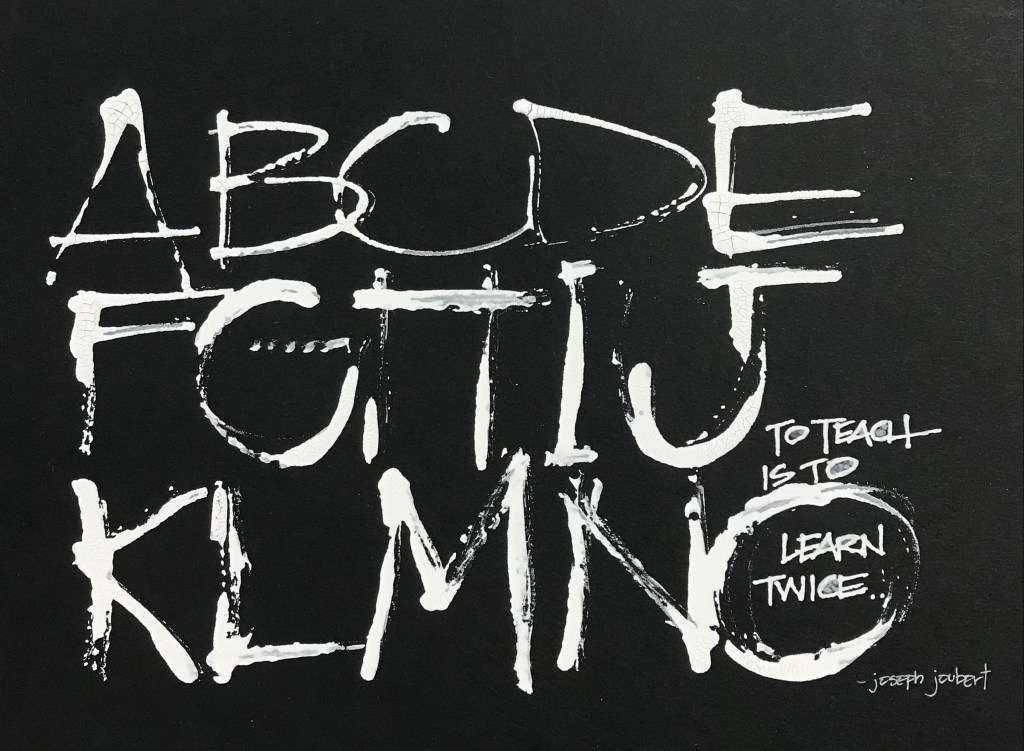 ABCDE
FGHIJ
KLMNO
TO TEACH
IS TO
LEARN
TWICE..
- joseph joubert